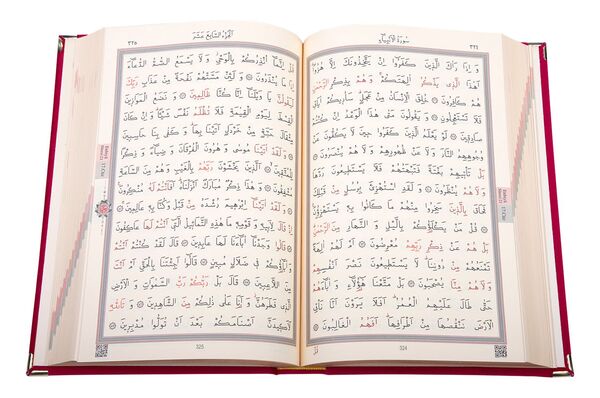 سُورَةُ الْأَنْبِيَاءِ
٣٢٤
وَإِذَا رَآكَ الَّذِينَ كَفَرُوا إِنْ يَتَّخِذُونَكَ إِلَّا هُزُوًا
أَهَذَا الَّذِي يَذْكُرُ آلِهَتَكُمْ وَهُمْ بِذِكْرِ الرَّحْمَنِ
هُمْ كَافِرُونَ خُلِقَ الْإِنْسَانُ مِنْ عَجَلٍ سَأُرِيكُمْ آيَاتِي
فَلَا تَسْتَعْجِلُونِ وَيَقُولُونَ مَتَى هَذَا الْوَعْدُ إِنْ كُنْتُمْ
صَادِقِينَ لَوْ يَعْلَمُ الَّذِينَ كَفَرُوا حِينَ لَا يَكُفُّونَ
عَنْ وُجُوهِهِمُ النَّارَ وَلَا عَنْ ظُهُورِهِمْ وَلَا هُمْ يُنْصَرُونَ
بَلْ تَأْتِيهِمْ بَغْتَةً فَتَبْهَتُهُمْ فَلَا يَسْتَطِيعُونَ رَدَّهَا
وَلَا هُمْ يُنْظَرُونَ وَلَقَدِ اسْتُهْزِئَ بِرُسُلٍ مِنْ قَبْلِكَ
فَحَاقَ بِالَّذِينَ سَخِرُوا مِنْهُمْ مَا كَانُوا بِهِ يَسْتَهْزِؤُنَ
قُلْ مَنْ يَكْلَؤُكُمْ بِاللَّيْلِ وَالنَّهَارِ مِنَ الرَّحْمَنِ
بَلْ هُمْ عَنْ ذِكْرِ رَبِّهِمْ مُعْرِضُونَ أَمْ لَهُمْ آلِهَةٌ
تَمْنَعُهُمْ مِنْ دُونِنَا لَا يَسْتَطِيعُونَ نَصْرَ أَنْفُسِهِمْ
وَلَا هُمْ مِنَّا يُصْحَبُونَ بَلْ مَتَّعْنَا هَؤُلَاءِ وَآبَاءَهُمْ
حَتَّى طَالَ عَلَيْهِمُ الْعُمُرُ أَفَلَا يَرَوْنَ أَنَّا نَأْتِي
الْأَرْضَ نَنْقُصُهَا مِنْ أَطْرَافِهَا أَفَهُمُ الْغَالِبُونَ
324
اَلْجُزْءُ السَّابِعَ عَشَرَ
٣٢٥
قُلْ إِنَّمَا أُنْذِرُكُمْ بِالْوَحْيِ وَلَا يَسْمَعُ الصُّمُّ الدُّعَاءَ
إِذَا مَا يُنْذَرُونَ وَلَئِنْ مَسَّتْهُمْ نَفْحَةٌ مِنْ عَذَابِ رَبِّكَ
لَيَقُولُنَّ يَا وَيْلَنَا إِنَّا كُنَّا ظَالِمِينَ وَنَضَعُ الْمَوَازِينَ
الْقِسْطَ لِيَوْمِ الْقِيَمَةِ فَلَا تُظْلَمُ نَفْسٌ شَيْئًا وَإِنْ كَانَ
مِثْقَالَ حَبَّةٍ مِنْ خَرْدَلٍ أَتَيْنَا بِهَا وَكَفَى بِنَا حَاسِبِينَ
وَلَقَدْ آتَيْنَا مُوسَى وَهَارُونَ الْفُرْقَانَ وَضِيَاءً وَذِكْرًا
لِلْمُتَّقِينَ الَّذِينَ يَخْشَوْنَ رَبَّهُمْ بِالْغَيْبِ وَهُمْ مِنَ السَّاعَةِ
مُشْفِقُونَ وَهَذَا ذِكْرٌ مُبَارَكٌ أَنْزَلْنَاهُ أَفَأَنْتُمْ لَهُ مُنْكِرُونَ
وَلَقَدْ آتَيْنَا إِبْرَهِيمَ رُشْدَهُ مِنْ قَبْلُ وَكُنَّا بِهِ عَالِمِينَ
إِذْ قَالَ لِأَبِيهِ وَقَوْمِهِ مَا هَذِهِ التَّمَاثِيلُ الَّتِي أَنْتُمْ لَهَا عَاكِفُونَ
قَالُوا وَجَدْنَا آبَاءَنَا لَهَا عَابِدِينَ قَالَ لَقَدْ كُنْتُمْ أَنْتُمْ
وَآبَاؤُكُمْ فِي ضَلَالٍ مُبِينٍ قَالُوا أَجِئْتَنَا بِالْحَقِّ أَمْ أَنْتَ
مِنَ اللَّاعِبِينَ قَالَ بَلْ رَبُّكُمْ رَبُّ السَّمَوَاتِ وَالْأَرْضِ
الَّذِي فَطَرَهُنَّ وَأَنَا عَلَى ذَلِكُمْ مِنَ الشَّاهِدِينَ وَتَاللَّهِ
لَأَكِيدَنَّ أَصْنَامَكُمْ بَعْدَ أَنْ تُوَلُّوا مُدْبِرِينَ
325